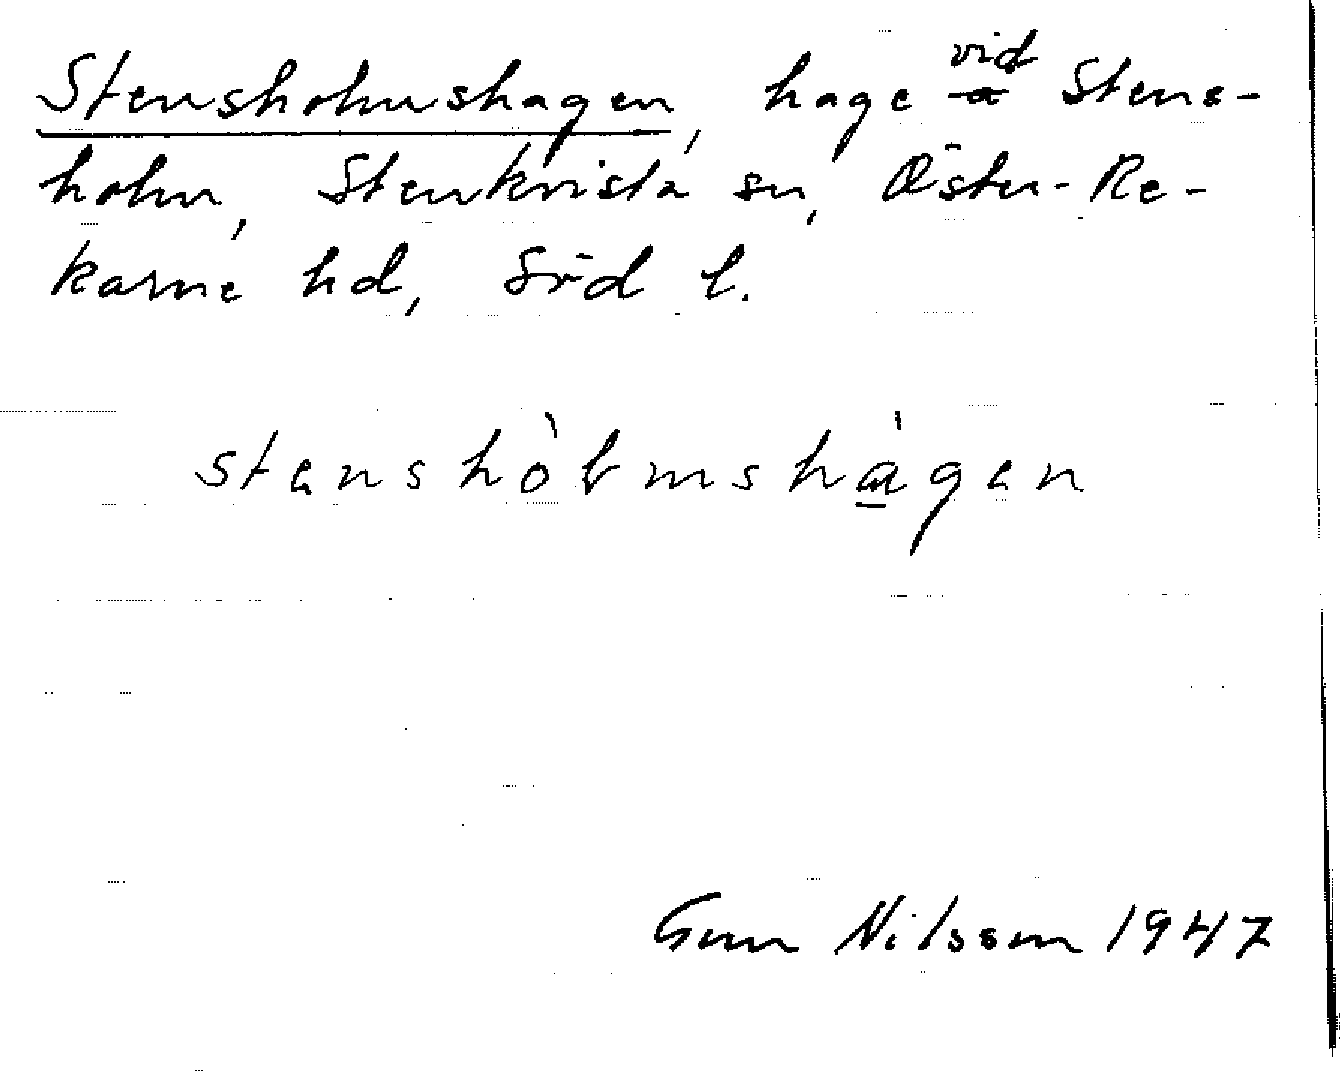 Stensholmshagen, hage vid Stens-
holm, Stenkvista sn, Öster-Re-
karne hd, Söd l.
stenshòlmshàgen
Gun Nilsson 1947